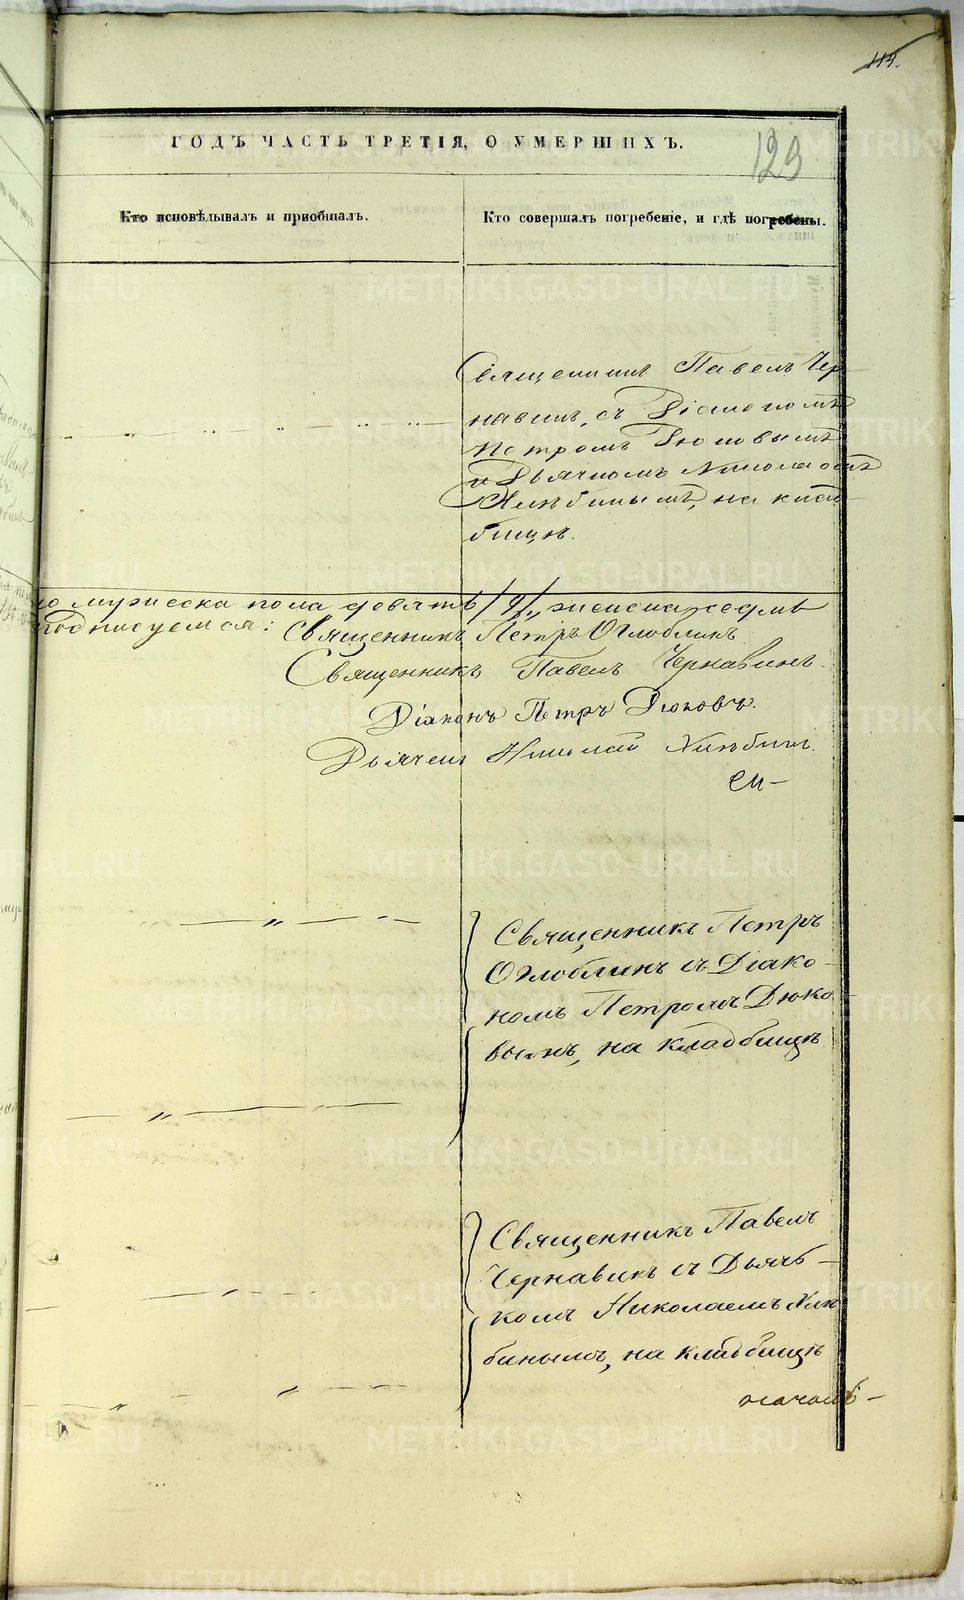 ГОДЪ ЧАСТЬ ТРЕТІЯ, О УМЕРШИХЪ.
129
Кто исповѣдывалъ и пріобщалъ.
Кто совершалъ погребеніе, и гдѣ погребены.
Священникъ Павелъ Чер-
навинъ, съ Діакономъ
Петромъ Дюковымъ
и Дьячкомъ Николаемъ
на клад-
бищѣ.
мужеска пола девять /9/, женска седмь
подписуемся: Священникъ Петръ Оглоблинъ
Священникъ Павелъ Чернавинъ.
Діаконъ Петръ Дюковъ.
Дьячекъ Николай Хлѣбинъ.
Священникъ Петръ
Оглоблинъ съ Діако-
номъ Петромъ Дюко-
вымъ, на кладбищѣ
Священникъ Павелъ
Чернавинъ съ Дьячь-
комъ Николаемъ Хлѣ-
бинымъ, на кладбищѣ
METRIKI.GASO-URAL.RU